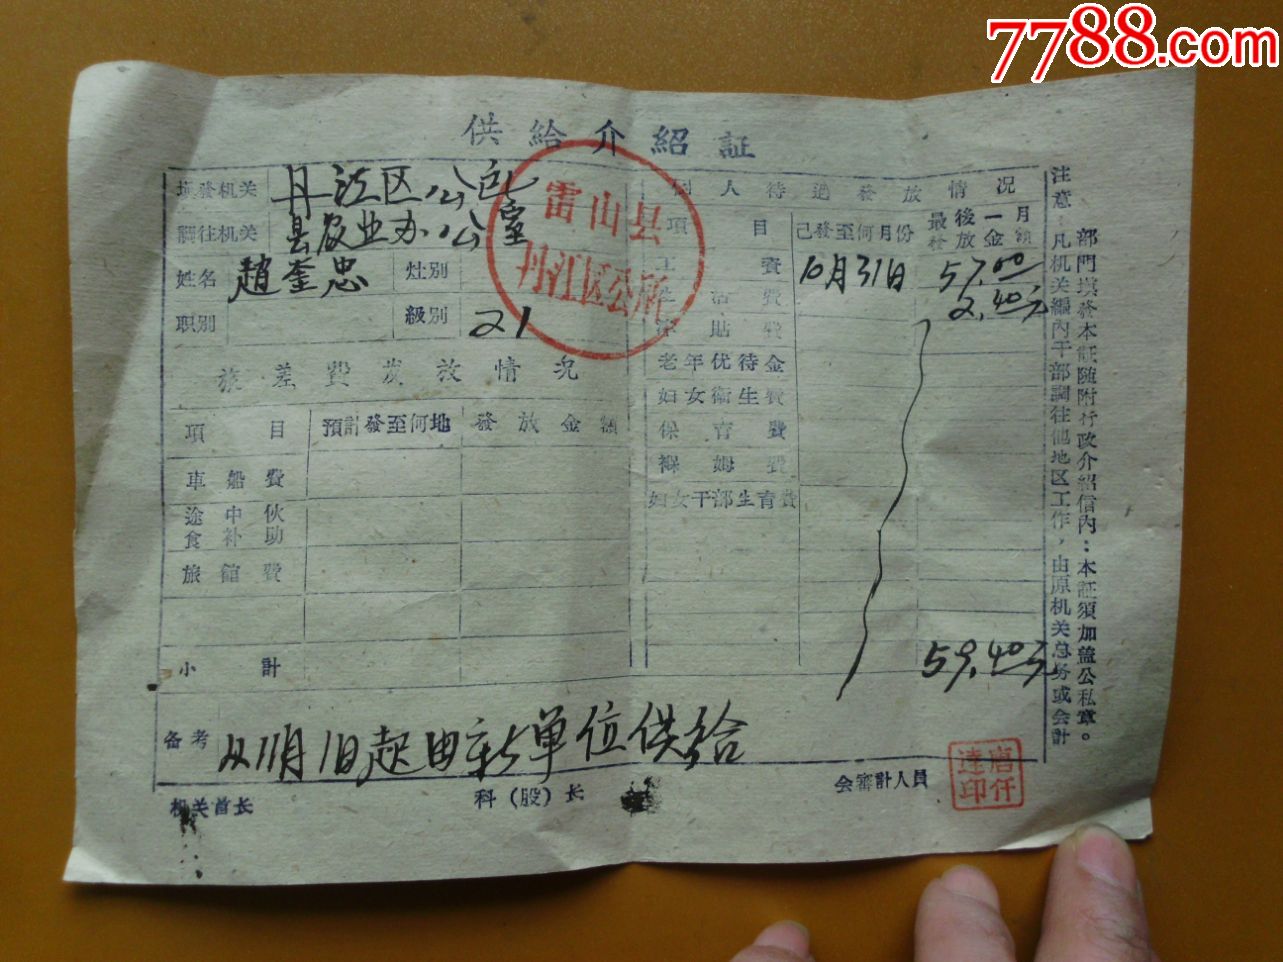 7788.com
供给介紹証
填發机关 丹江区公所
調往机关 县农业办公室
姓名 趙奎忠 灶别
职别 級别 21
旅差費发放情况
項目 預計發至何地 發放金額
車船費
途中伙食补助
旅館費
小計
个人待遇發放情况
項目 已發至何月份 最後一月發放金額
工資 10月31日 57.00
生活費 2.40元
津貼費
老年优待金
妇女衛生費
保育費
褓姆費
妇女干部生育費
59.40元
备考 从11月1日起由新单位供给
机关首长 科（股）长 会審計人員
注意：凡机关編內干部調往他地区工作，由原机关总务或会計
部門填發本証随附行政介紹信內：本証須加盖公私章。
雷山县
丹江区公所
唐仟
達印